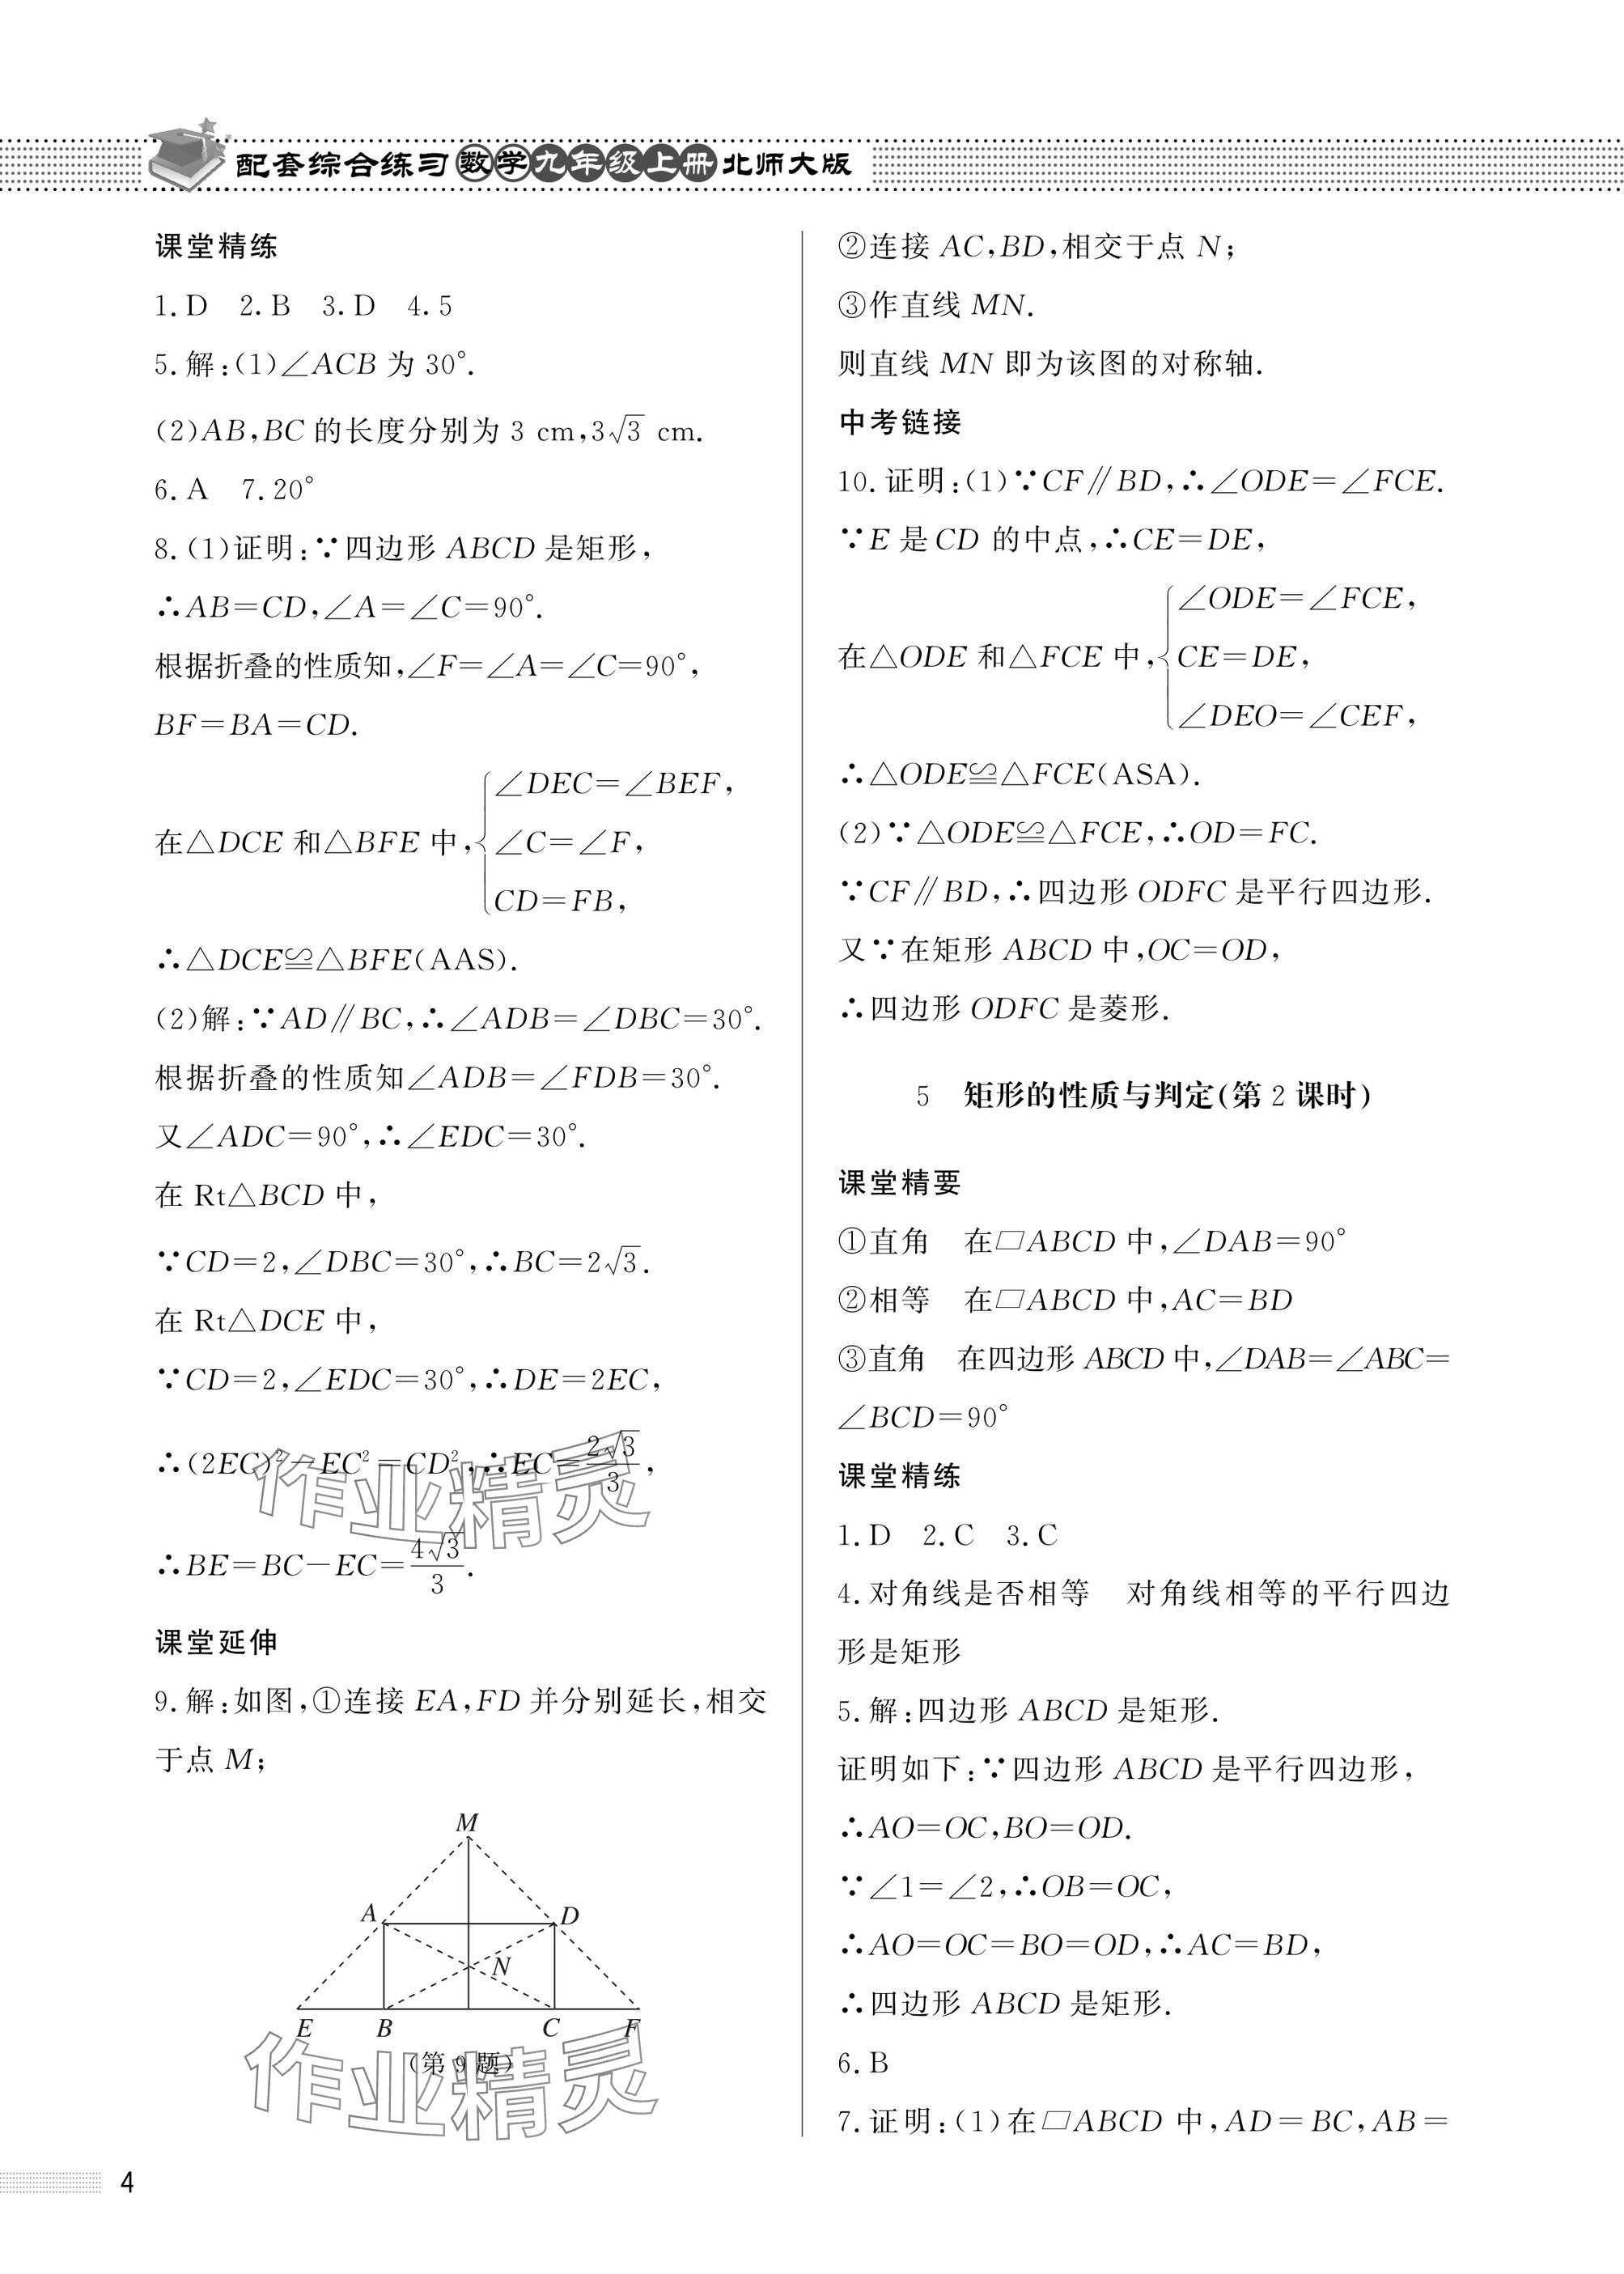 配套综合练习 数学九年级上册 北师大版
课堂精练
1.D 2.B 3.D 4.5
5.解:(1)∠ACB 为 30°.
(2)AB,BC 的长度分别为 3 cm,3√3 cm.
6.A 7.20°
8.(1)证明:∵四边形 ABCD 是矩形,
∴AB=CD,∠A=∠C=90°.
根据折叠的性质知,∠F=∠A=∠C=90°,
BF=BA=CD.
∠DEC=∠BEF,
在△DCE 和△BFE 中,{∠C=∠F,
CD=FB,
∴△DCE≌△BFE(AAS).
(2)解:∵AD∥BC,∴∠ADB=∠DBC=30°.
根据折叠的性质知∠ADB=∠FDB=30°.
又∠ADC=90°,∴∠EDC=30°.
在 Rt△BCD 中,
∵CD=2,∠DBC=30°,∴BC=2√3.
在 Rt△DCE 中,
∵CD=2,∠EDC=30°,∴DE=2EC,
∴(2EC)²-EC²=CD²,∴EC=2√3/3,
∴BE=BC-EC=4√3/3.
课堂延伸
9.解:如图,①连接 EA,FD 并分别延长,相交
于点 M;
M
A D
N
E B C F
(第 9 题)
作业精灵
作业精灵
②连接 AC,BD,相交于点 N;
③作直线 MN.
则直线 MN 即为该图的对称轴.
中考链接
10.证明:(1)∵CF∥BD,∴∠ODE=∠FCE.
∵E 是 CD 的中点,∴CE=DE,
∠ODE=∠FCE,
在△ODE 和△FCE 中,{CE=DE,
∠DEO=∠CEF,
∴△ODE≌△FCE(ASA).
(2)∵△ODE≌△FCE,∴OD=FC.
∵CF∥BD,∴四边形 ODFC 是平行四边形.
又∵在矩形 ABCD 中,OC=OD,
∴四边形 ODFC 是菱形.
5 矩形的性质与判定(第 2 课时)
课堂精要
①直角 在▱ABCD 中,∠DAB=90°
②相等 在▱ABCD 中,AC=BD
③直角 在四边形 ABCD 中,∠DAB=∠ABC=
∠BCD=90°
课堂精练
1.D 2.C 3.C
4.对角线是否相等 对角线相等的平行四边
形是矩形
5.解:四边形 ABCD 是矩形.
证明如下:∵四边形 ABCD 是平行四边形,
∴AO=OC,BO=OD.
∵∠1=∠2,∴OB=OC,
∴AO=OC=BO=OD,∴AC=BD,
∴四边形 ABCD 是矩形.
6.B
7.证明:(1)在▱ABCD 中,AD=BC,AB=
4